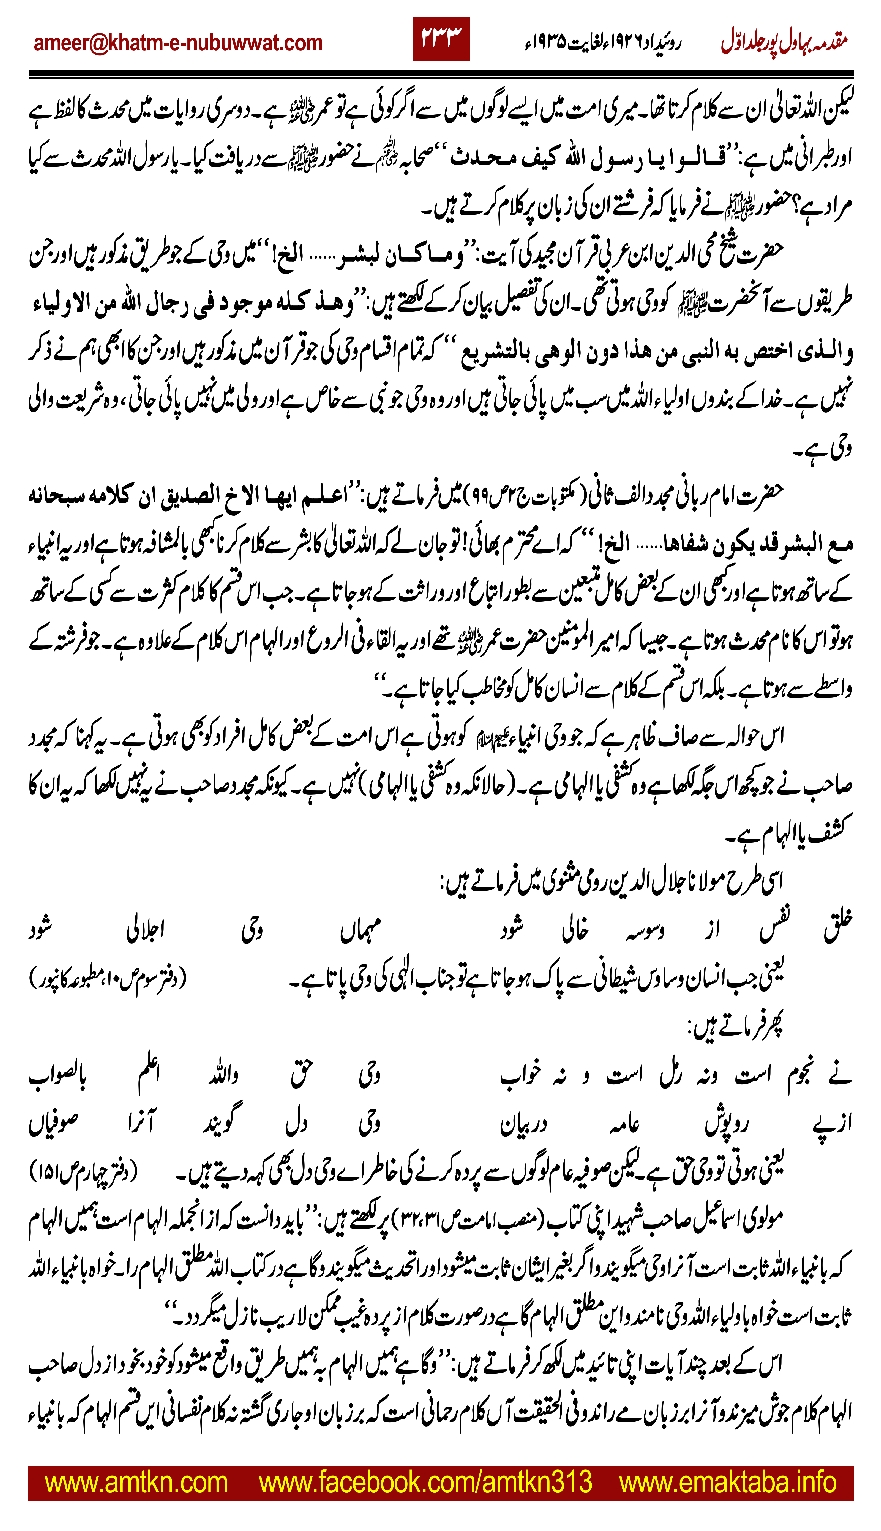 مقدمہ بہاول پور جلد اوّل روئیداد ۱۹۲۶ء لغایت ۱۹۳۵ء ۲۳۳ ameer@khatm-e-nubuwwat.com
لیکن اللہ تعالیٰ ان سے کلام کرتا تھا۔ میری امت میں ایسے لوگوں میں سے اگر کوئی ہے تو عمرؓ ہے۔ دوسری روایات میں محدث کا لفظ ہے
اور طبرانی میں ہے: ’’قالوا یا رسول اللہ کیف محدث‘‘ صحابہؓ نے حضورﷺ سے دریافت کیا۔ یا رسول اللہ محدث سے کیا
مراد ہے؟ حضورﷺ نے فرمایا کہ فرشتے ان کی زبان پر کلام کرتے ہیں۔
حضرت شیخ محی الدین ابن عربی قرآن مجید کی آیت: ’’وماکان لبشر...... الخ!‘‘ میں وحی کے جو طریق مذکور ہیں اور جن
طریقوں سے آنحضرتﷺ کو وحی ہوتی تھی۔ ان کی تفصیل بیان کر کے لکھتے ہیں: ’’وھذ کلہ موجود فی رجال اللہ من الاولیاء
والذی اختص بہ النبی من ھذا دون الوھی بالتشریع‘‘ کہ تمام اقسام وحی کی جو قرآن میں مذکور ہیں اور جن کا ابھی ہم نے ذکر
نہیں ہے۔ خدا کے بندوں اولیاء اللہ میں سب میں پائی جاتی ہیں اور وہ وحی جو نبی سے خاص ہے اور ولی میں نہیں پائی جاتی، وہ شریعت والی
وحی ہے۔
حضرت امام ربانی مجدد الف ثانی (مکتوبات ج۲ ص۹۹) میں فرماتے ہیں: ’’اعلم ایھا الاخ الصدیق ان کلامہ سبحانہ
مع البشر قد یکون شفاھا...... الخ!‘‘ کہ اے محترم بھائی! تو جان لے کہ اللہ تعالیٰ کا بشر سے کلام کرنا کبھی بالمشافہ ہوتا ہے اور یہ انبیاء
کے ساتھ ہوتا ہے اور کبھی ان کے بعض کامل متبعین سے بطور اتباع اور وراثت کے ہو جاتا ہے۔ جب اس قسم کا کلام کثرت سے کسی کے ساتھ
ہو تو اس کا نام محدث ہوتا ہے۔ جیسا کہ امیرالمؤمنین حضرت عمرؓ تھے اور یہ القاء فی الروع اور الہام اس کلام کے علاوہ ہے۔ جو فرشتہ کے
واسطے سے ہوتا ہے۔ بلکہ اس قسم کے کلام سے انسان کامل کو مخاطب کیا جاتا ہے۔‘‘
اس حوالہ سے صاف ظاہر ہے کہ جو وحی انبیاءؑ کو ہوتی ہے اس امت کے بعض کامل افراد کو بھی ہوتی ہے۔ یہ کہنا کہ مجدد
صاحب نے جو کچھ اس جگہ لکھا ہے وہ کشفی یا الہامی ہے۔ (حالانکہ وہ کشفی یا الہامی) نہیں ہے۔ کیونکہ مجدد صاحب نے یہ نہیں لکھا کہ یہ ان کا
کشف یا الہام ہے۔
اسی طرح مولانا جلال الدین رومی مثنوی میں فرماتے ہیں:
خلق نفس از وسوسہ خالی شود مہماں وحی اجلالی شود
یعنی جب انسان وساوس شیطانی سے پاک ہو جاتا ہے تو جناب الٰہی کی وحی پاتا ہے۔ (دفتر سوم ص۱۰، مطبوعہ کانپور)
پھر فرماتے ہیں:
نے نجوم است ونہ رمل است و نہ خواب وحی حق واللہ اعلم بالصواب
ازپے روپوش عامہ دربیان وحی دل گویند آنرا صوفیاں
یعنی ہوتی تو وحی حق ہے۔ لیکن صوفیہ عام لوگوں سے پردہ کرنے کی خاطر اے وحی دل بھی کہہ دیتے ہیں۔ (دفتر چہارم ص۱۵۱)
مولوی اسماعیل صاحب شہید اپنی کتاب (منصب امامت ص۳۱،۳۲) پر لکھتے ہیں: ’’باید دانست کہ ازانجملہ الہام است ہمیں الہام
کہ بانبیاء اللہ ثابت است آنرا وحی میگویند واگر بغیر ایشان ثابت میشود اورا تحدیث میگویند وگاہے در کتاب اللہ مطلق الہام را۔ خواہ بانبیاء اللہ
ثابت است خواہ باولیاء اللہ وحی نامند و این مطلق الہام گاہے در صورت کلام از پردہ غیب ممکن لاریب نازل میگردد۔‘‘
اس کے بعد چند آیات اپنی تائید میں لکھ کر فرماتے ہیں: ’’وگاہے ہمیں الہام بہ ہمیں طریق واقع میشود کو خود بخود از دل صاحب
الہام کلام جوش میزند و آنرا بر زبان مے راند و فی الحقیقت آں کلام رحمانی است کہ بر زبان او جاری گشتہ نہ کلام نفسانی ایں قسم الہام کہ بانبیاء
www.amtkn.com www.facebook.com/amtkn313 www.emaktaba.info